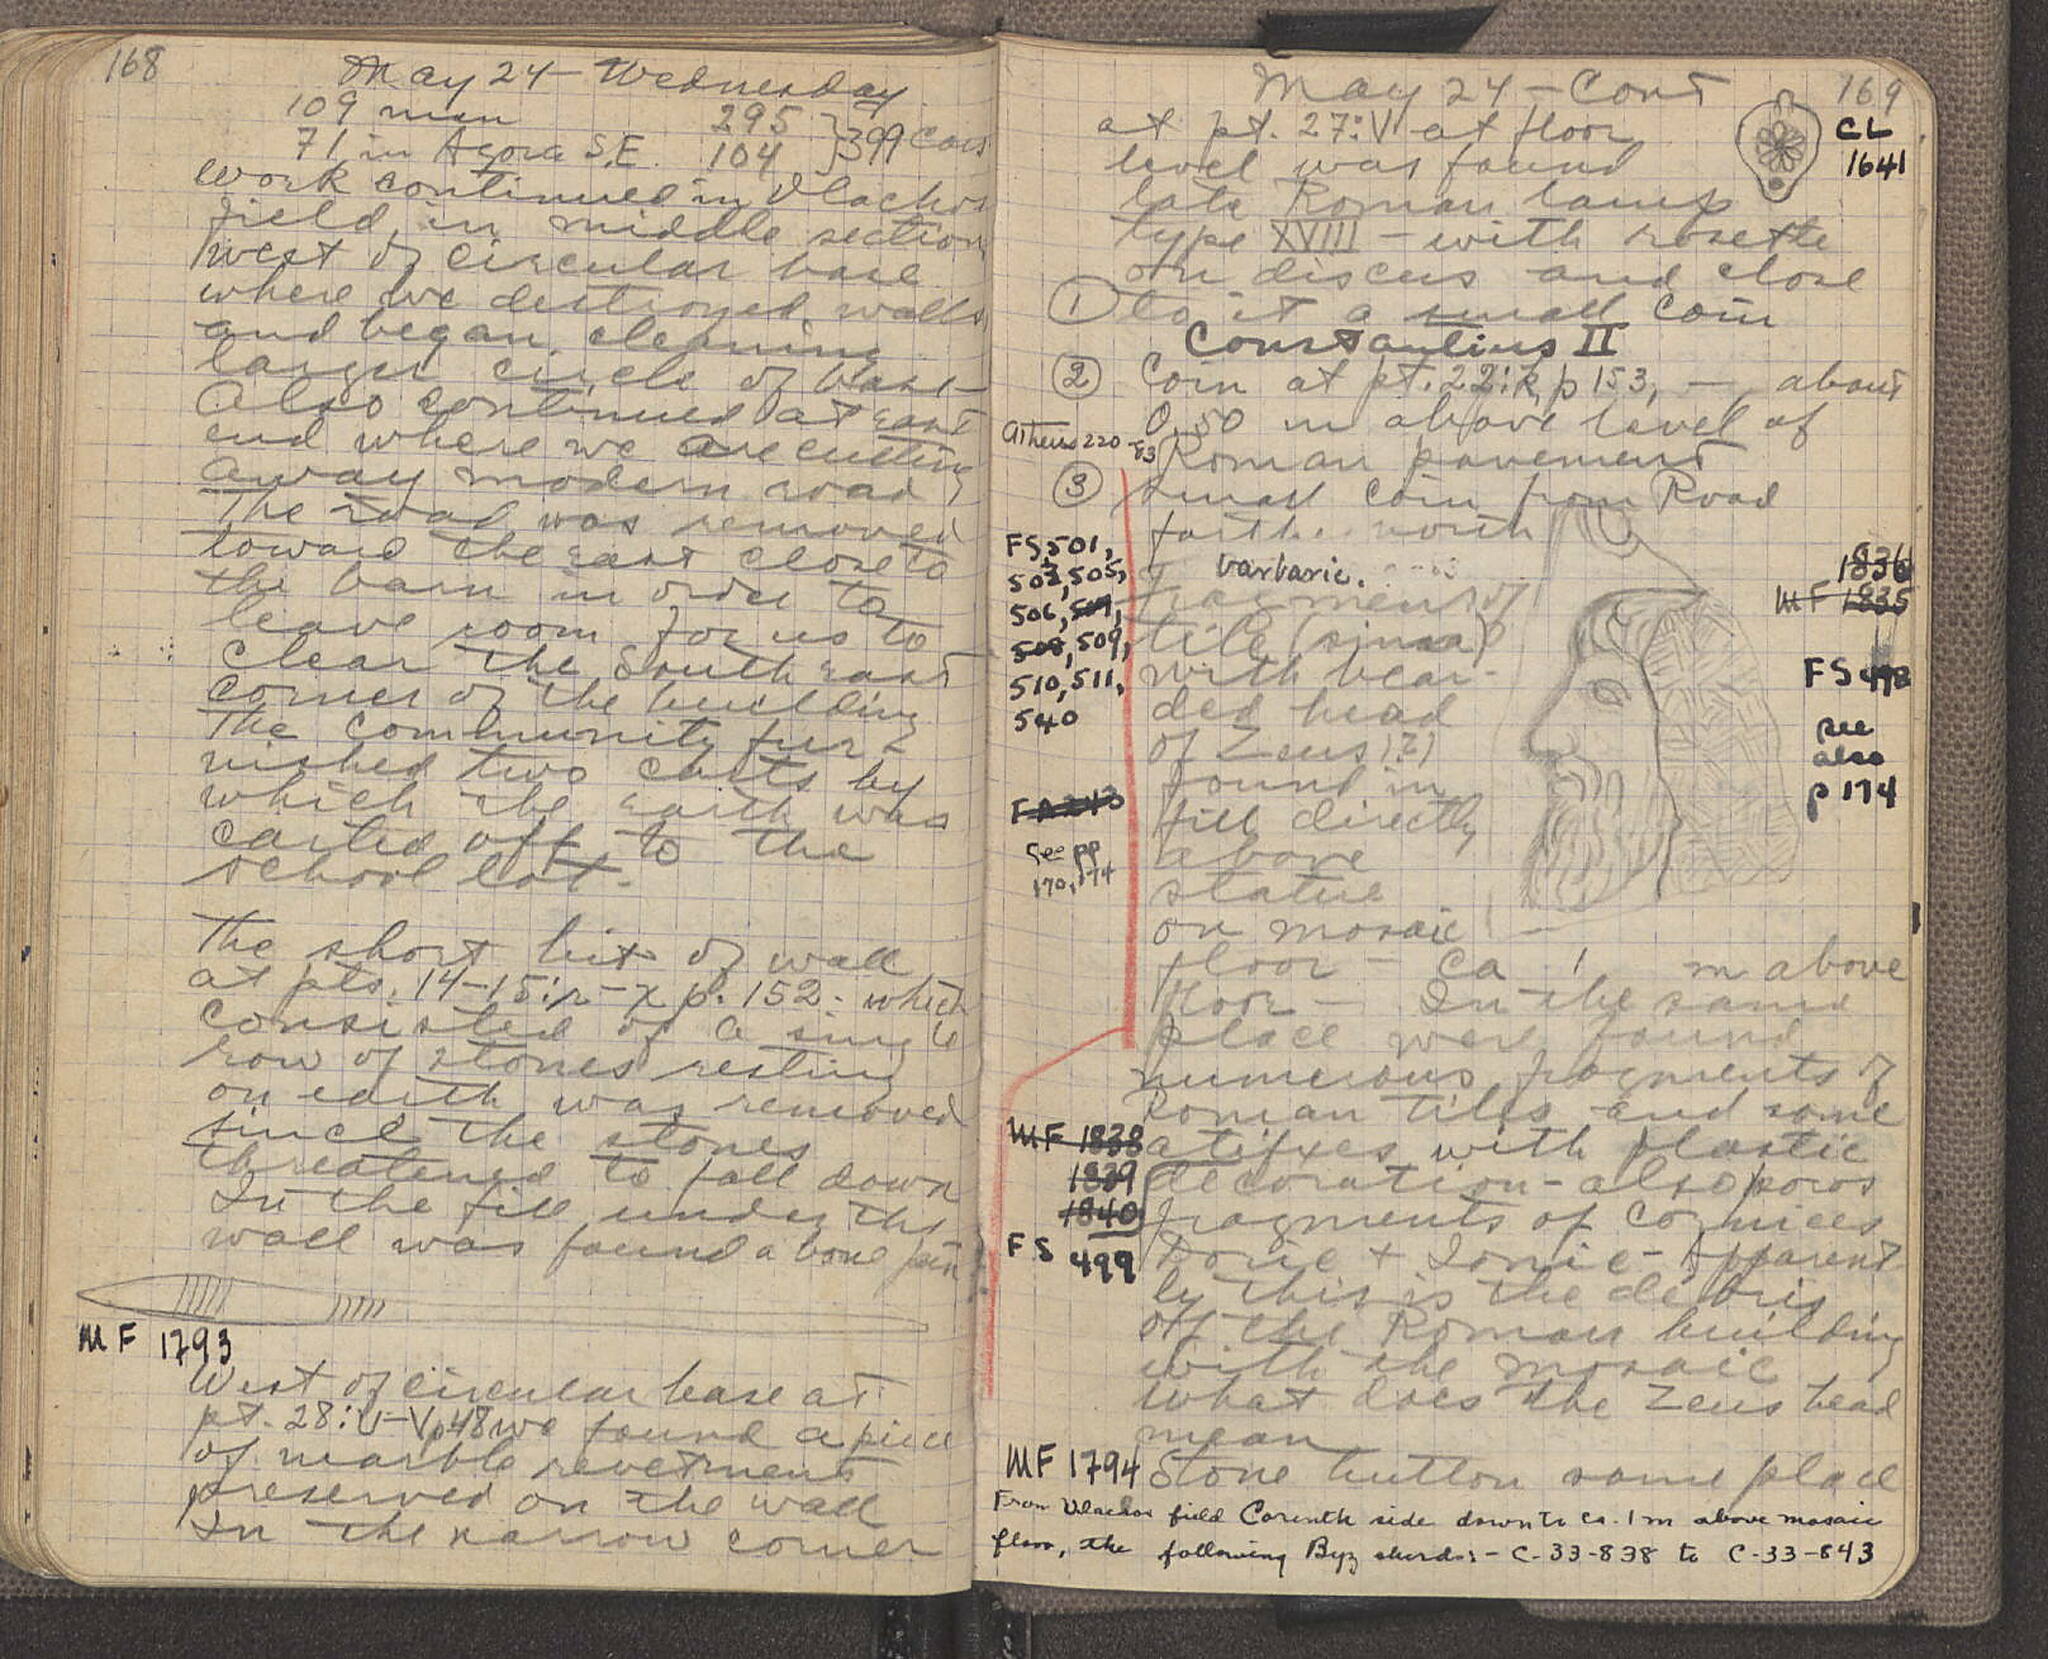 168
May 24 - Wednesday
109 men 295 } 399 Cars
71 in Agora S.E. 104
Work continued in Vlachos
field, in middle section
west of circular base
where we destroyed walls
and began cleaning
larger circle of base -
Also continued at east
end where we are cutting
away modern road,
The road was removed
toward the east close to
the barn in order to
leave room for us to
clear the South east
corner of the building
The community fur-
nished two carts by
which the earth was
carted off to the
school lot.
The short bit of wall
at pts. 14-15:r-x p. 152 - which
consisted of a single
row of stones resting
on earth was removed
since the stones
threatened to fall down
In the fill under the
wall was found a bone pin
MF 1793
West of circular base at
pt. 28:U-V p 48 we found a piece
of marble revetment
preserved on the wall
In the narrow corner
169
May 24 - Cont
at pt. 27:V at floor
level was found
late Roman lamp
type XVIII - with rosette
on discus and close
① to it a small coin
Constantius II
CL
1641
② Coin at pt. 22:k, p 153, — about
0.50 m above level of
Roman pavement
Athens 220-83
③ small coin from Road
farther north
barbaric.
FS 501,
503, 505,
506, 507,
508, 509,
510, 511,
540
FA 243
see pp
170, 174
Fragment of
tile (sima)
with bear-
ded head
of Zeus (?)
found in
fill directly
above
statue
on mosaic
floor - Ca 1 m above
floor - In the same
place were found
1836
MF 1835
FS 498
see
also
p 174
numerous fragments of
Roman tiles and some
atifxes with plastic
decoration - also poros
fragments of cornices
Doric + Ionic - Apparent
ly this is the debris
of the Roman building
with the mosaic
What does the Zeus head
mean
MF 1838
1839
1840
FS 499
MF 1794 Stone button same place
From Vlachos field Corinth side down to ca. 1 m above mosaic
floor, the following Byz sherds:- C-33-838 to C-33-843